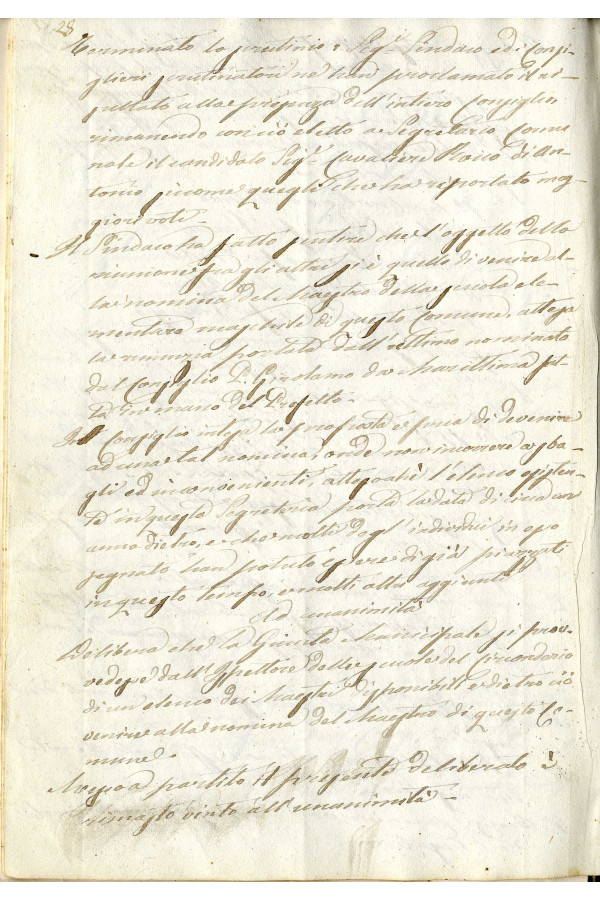 28
Terminato lo scrutinio i Sig.ri Sindaco ed i Consi-
glieri scrutinatori ne han proclamato il ri-
sultato alla presenza dell'intiero Consiglio
rimanendo con ciò eletto a Segretario Comu
nale il candidato Sig.r Cavaliere Rocco di An-
tonio siccome quegli che ha riportato mag
giori voti -
Il Sindaco ha fatto sentire che l'oggetto della
riunione fra gli altri si è quello di venire al-
la nomina del Maestro della scuola ele-
mentare maschile di questo Comune, attesa
la rinunzia portata dall'ultimo nominato
dal Consiglio D. Girolamo de Marittima
Germano del
Il Consiglio intesa la proposta e pria di devenire
ad una tal nomina, onde non incorrere a sba-
gli ed inconvenienti, attesochè l'elenco esisten-
te in questa Segreteria porta la data di circa un
anno dietro, e che molti degl'individui in esso
segnato han potuto essere di già piazzati
in questo tempo, e molti altri aggiunti
Ad unanimità
Delibera che la Giunta Municipale si prov-
vedesse dall'Ispettore delle scuole del Circondario
di un elenco dei Maestri disponibili e dietro ciò
venire alla nomina del Maestro di questo Co-
mune -
Messo a partito il presente deliberato è
rimasto vinto all'unanimità -